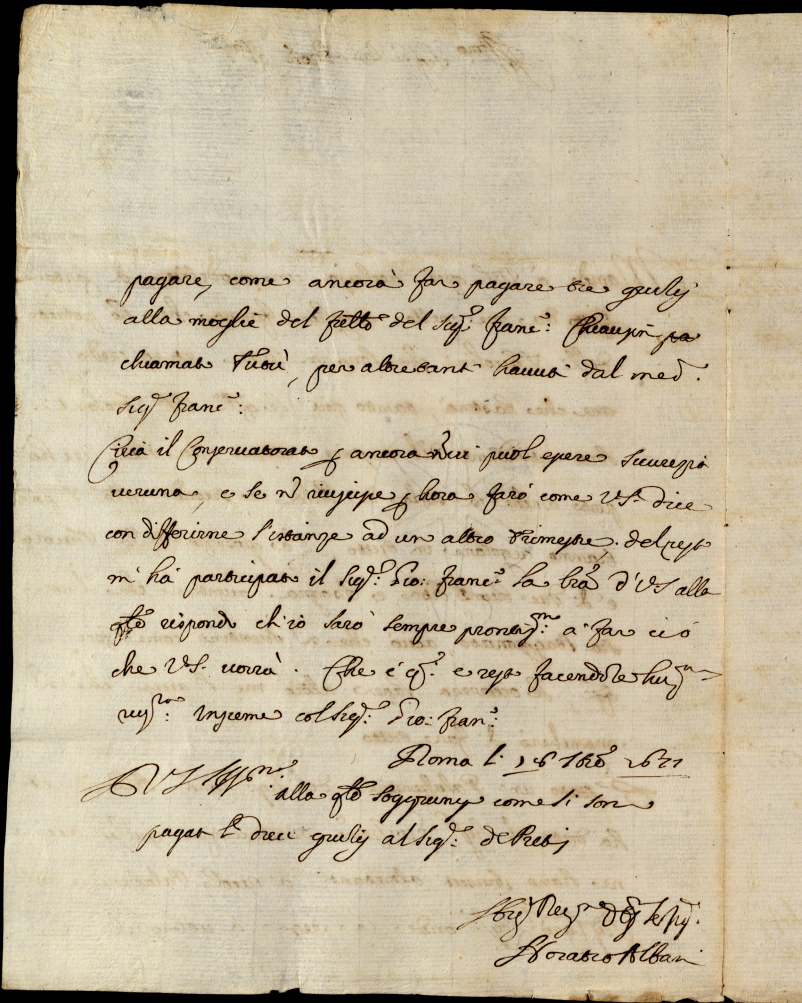 pagare, come ancorà far pagare tre giulij
alla moglie del fratto del sig.r franc.o:
chiamato, per altre tanti hauuti dal med.o
sig.r franc.o:
Circà il Conservatorato p ancora può essere sicurezza
ueruna, e se nō riuscisse p hora farò come VS. dice
con differirne l'istanze ad un altro trimestre, del resto
m'hà participato il Sig.r Gio: franc.o la l'ra d'VS alla
qle rispondo ch'io sarò sempre prontiss.mo a far ciò
che VS. uorrà. Che è q.to e resto facendole hum.ma
riu.za insieme col Sig.r Gio: fran.o:
Roma li 16
D VS Ill.ma alla qle soggiungo come si sono
pagati li dieci giulij al Sig.r de Preti
Horatio Albani